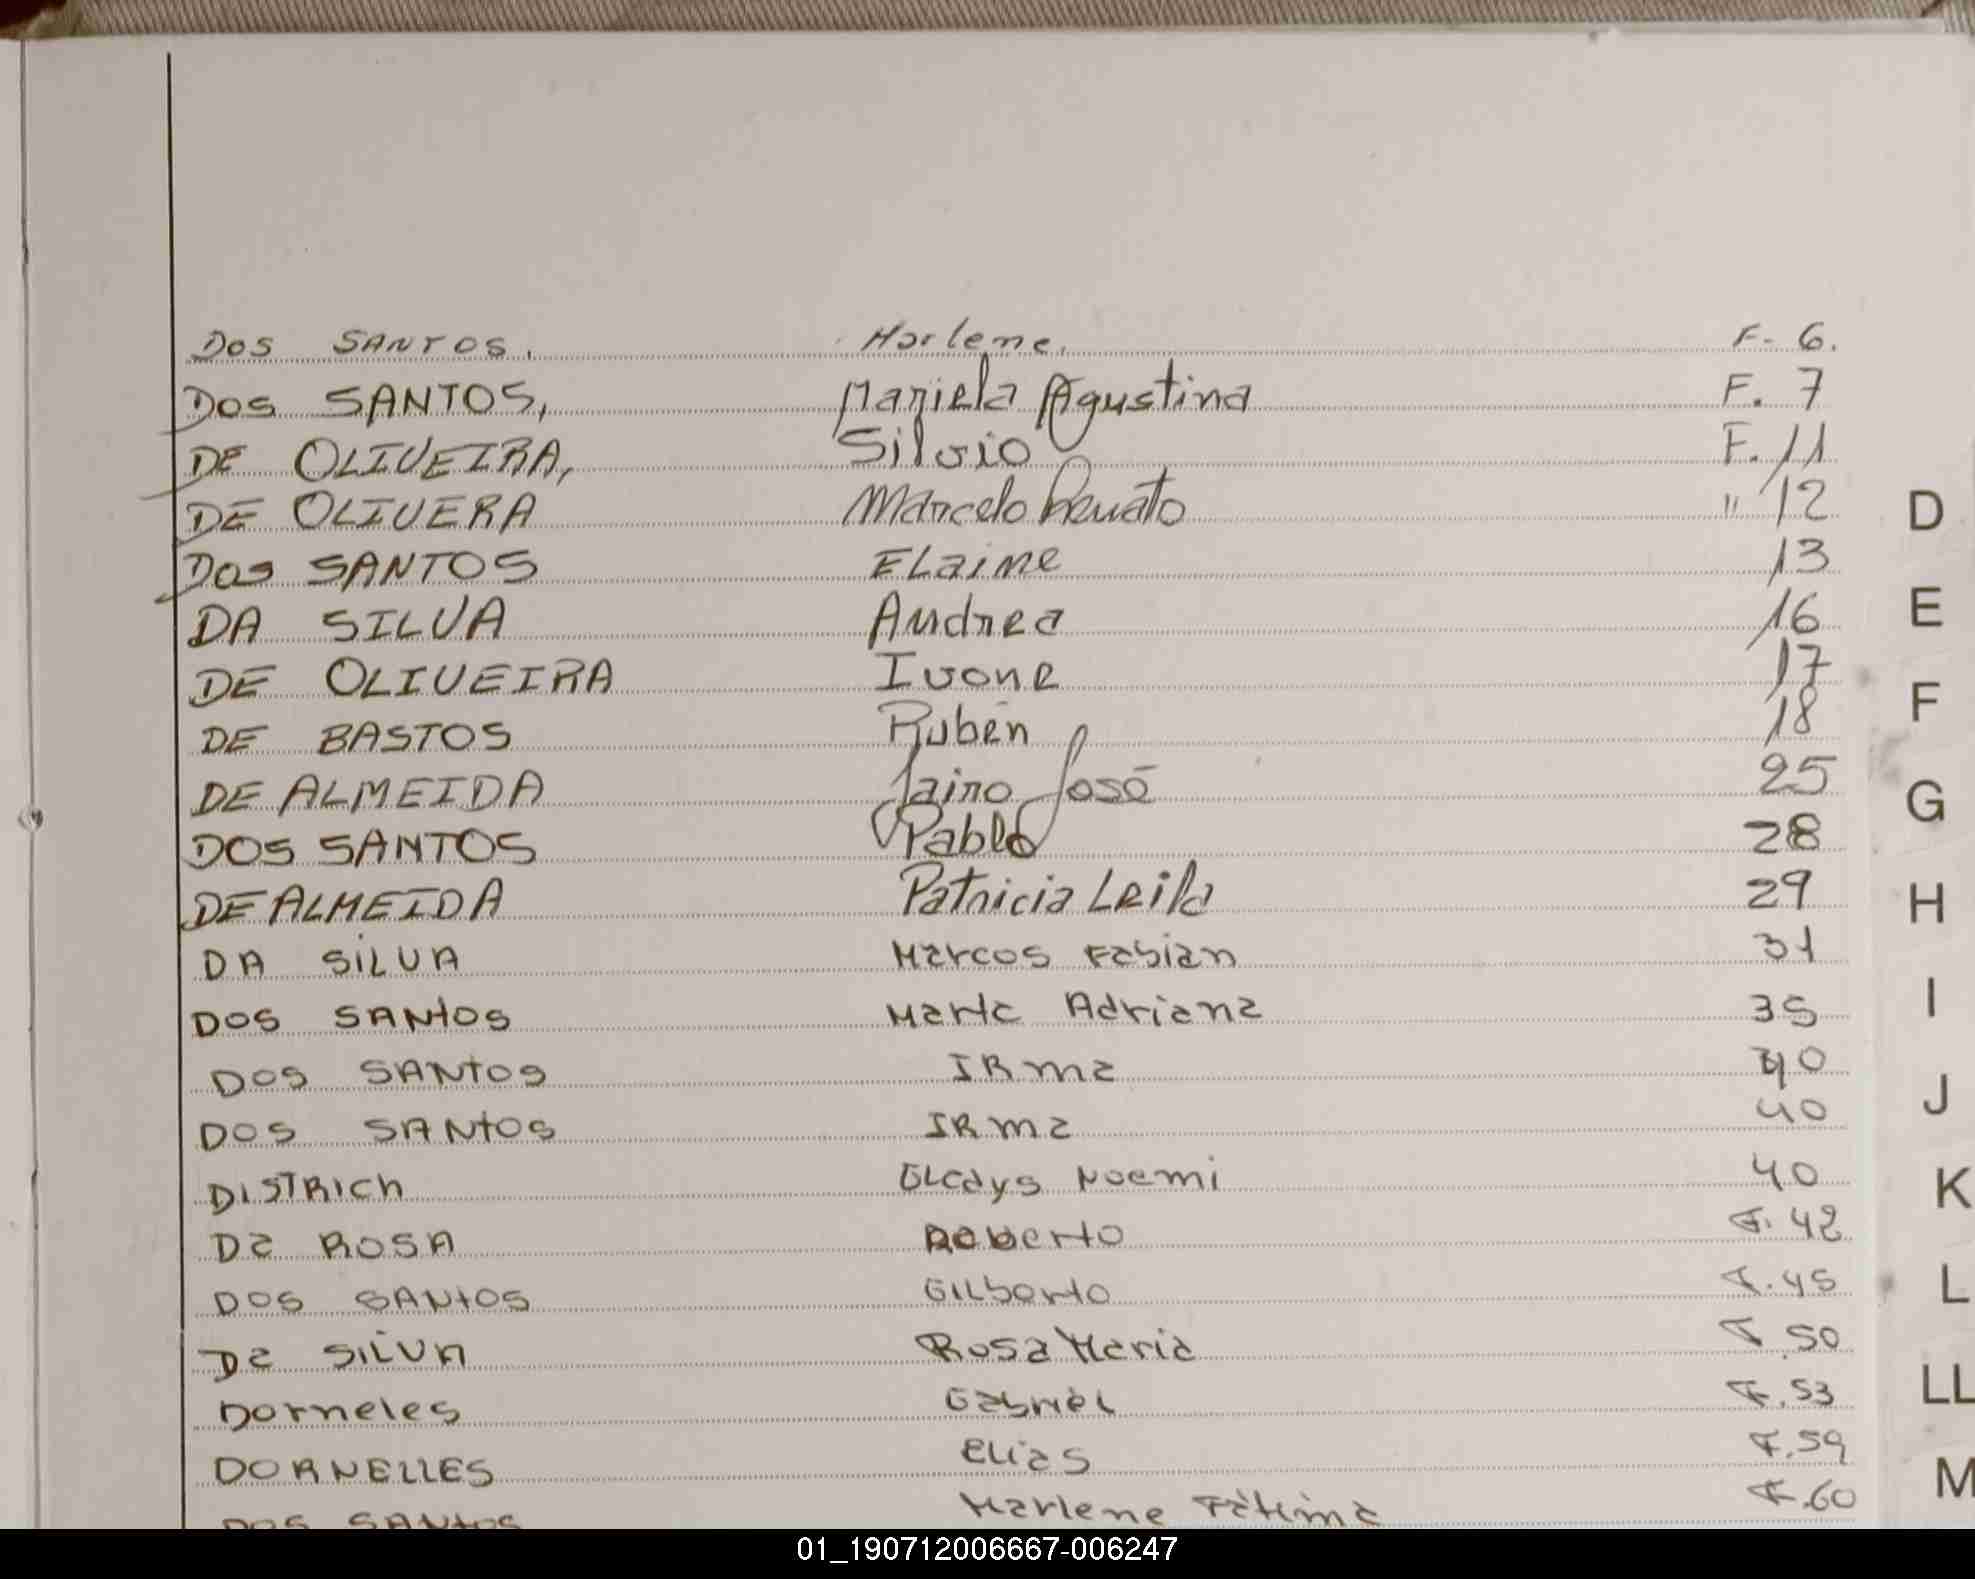 Dos SANTOS, Marlene. F. 6.
Dos SANTOS, Mariela Agustina F. 7
DE OLIVEIRA, Silvio F. 11
DE OLIVERA Marcelo Renato " 12
Dos SANTOS ELaine 13
DA SILVA Andrea 16
DE OLIVEIRA Ivone 17
DE BASTOS Rubén 18
DE ALMEIDA Jairo José 25
DOS SANTOS Pablo 28
DE ALMEIDA Patricia Leila 29
DA SiLVA Marcos Fabian 31
DOS SANtOS Marta Adriana 35
DOS SANtOS IRma 40
DOS SANtOS IRma 40
DISTRICh GLadys Noemi 40
Da ROSA Roberto F. 42
DOS SANtOS GILberto F. 45
Da SILVA Rosa Maria F. 50
Dorneles Gabriel F. 53
DORNELLES Elias F. 59
DOS SANtOS Marlene Fátima F. 60
D
E
F
G
H
I
J
K
L
LL
M
01_190712006667-006247